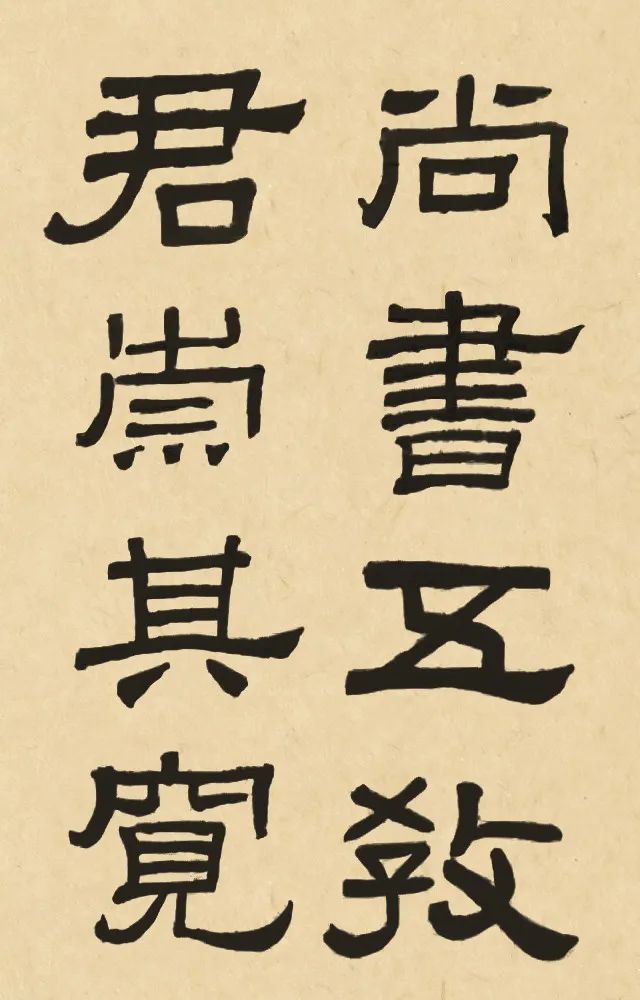 尚書五教
君崇其寛